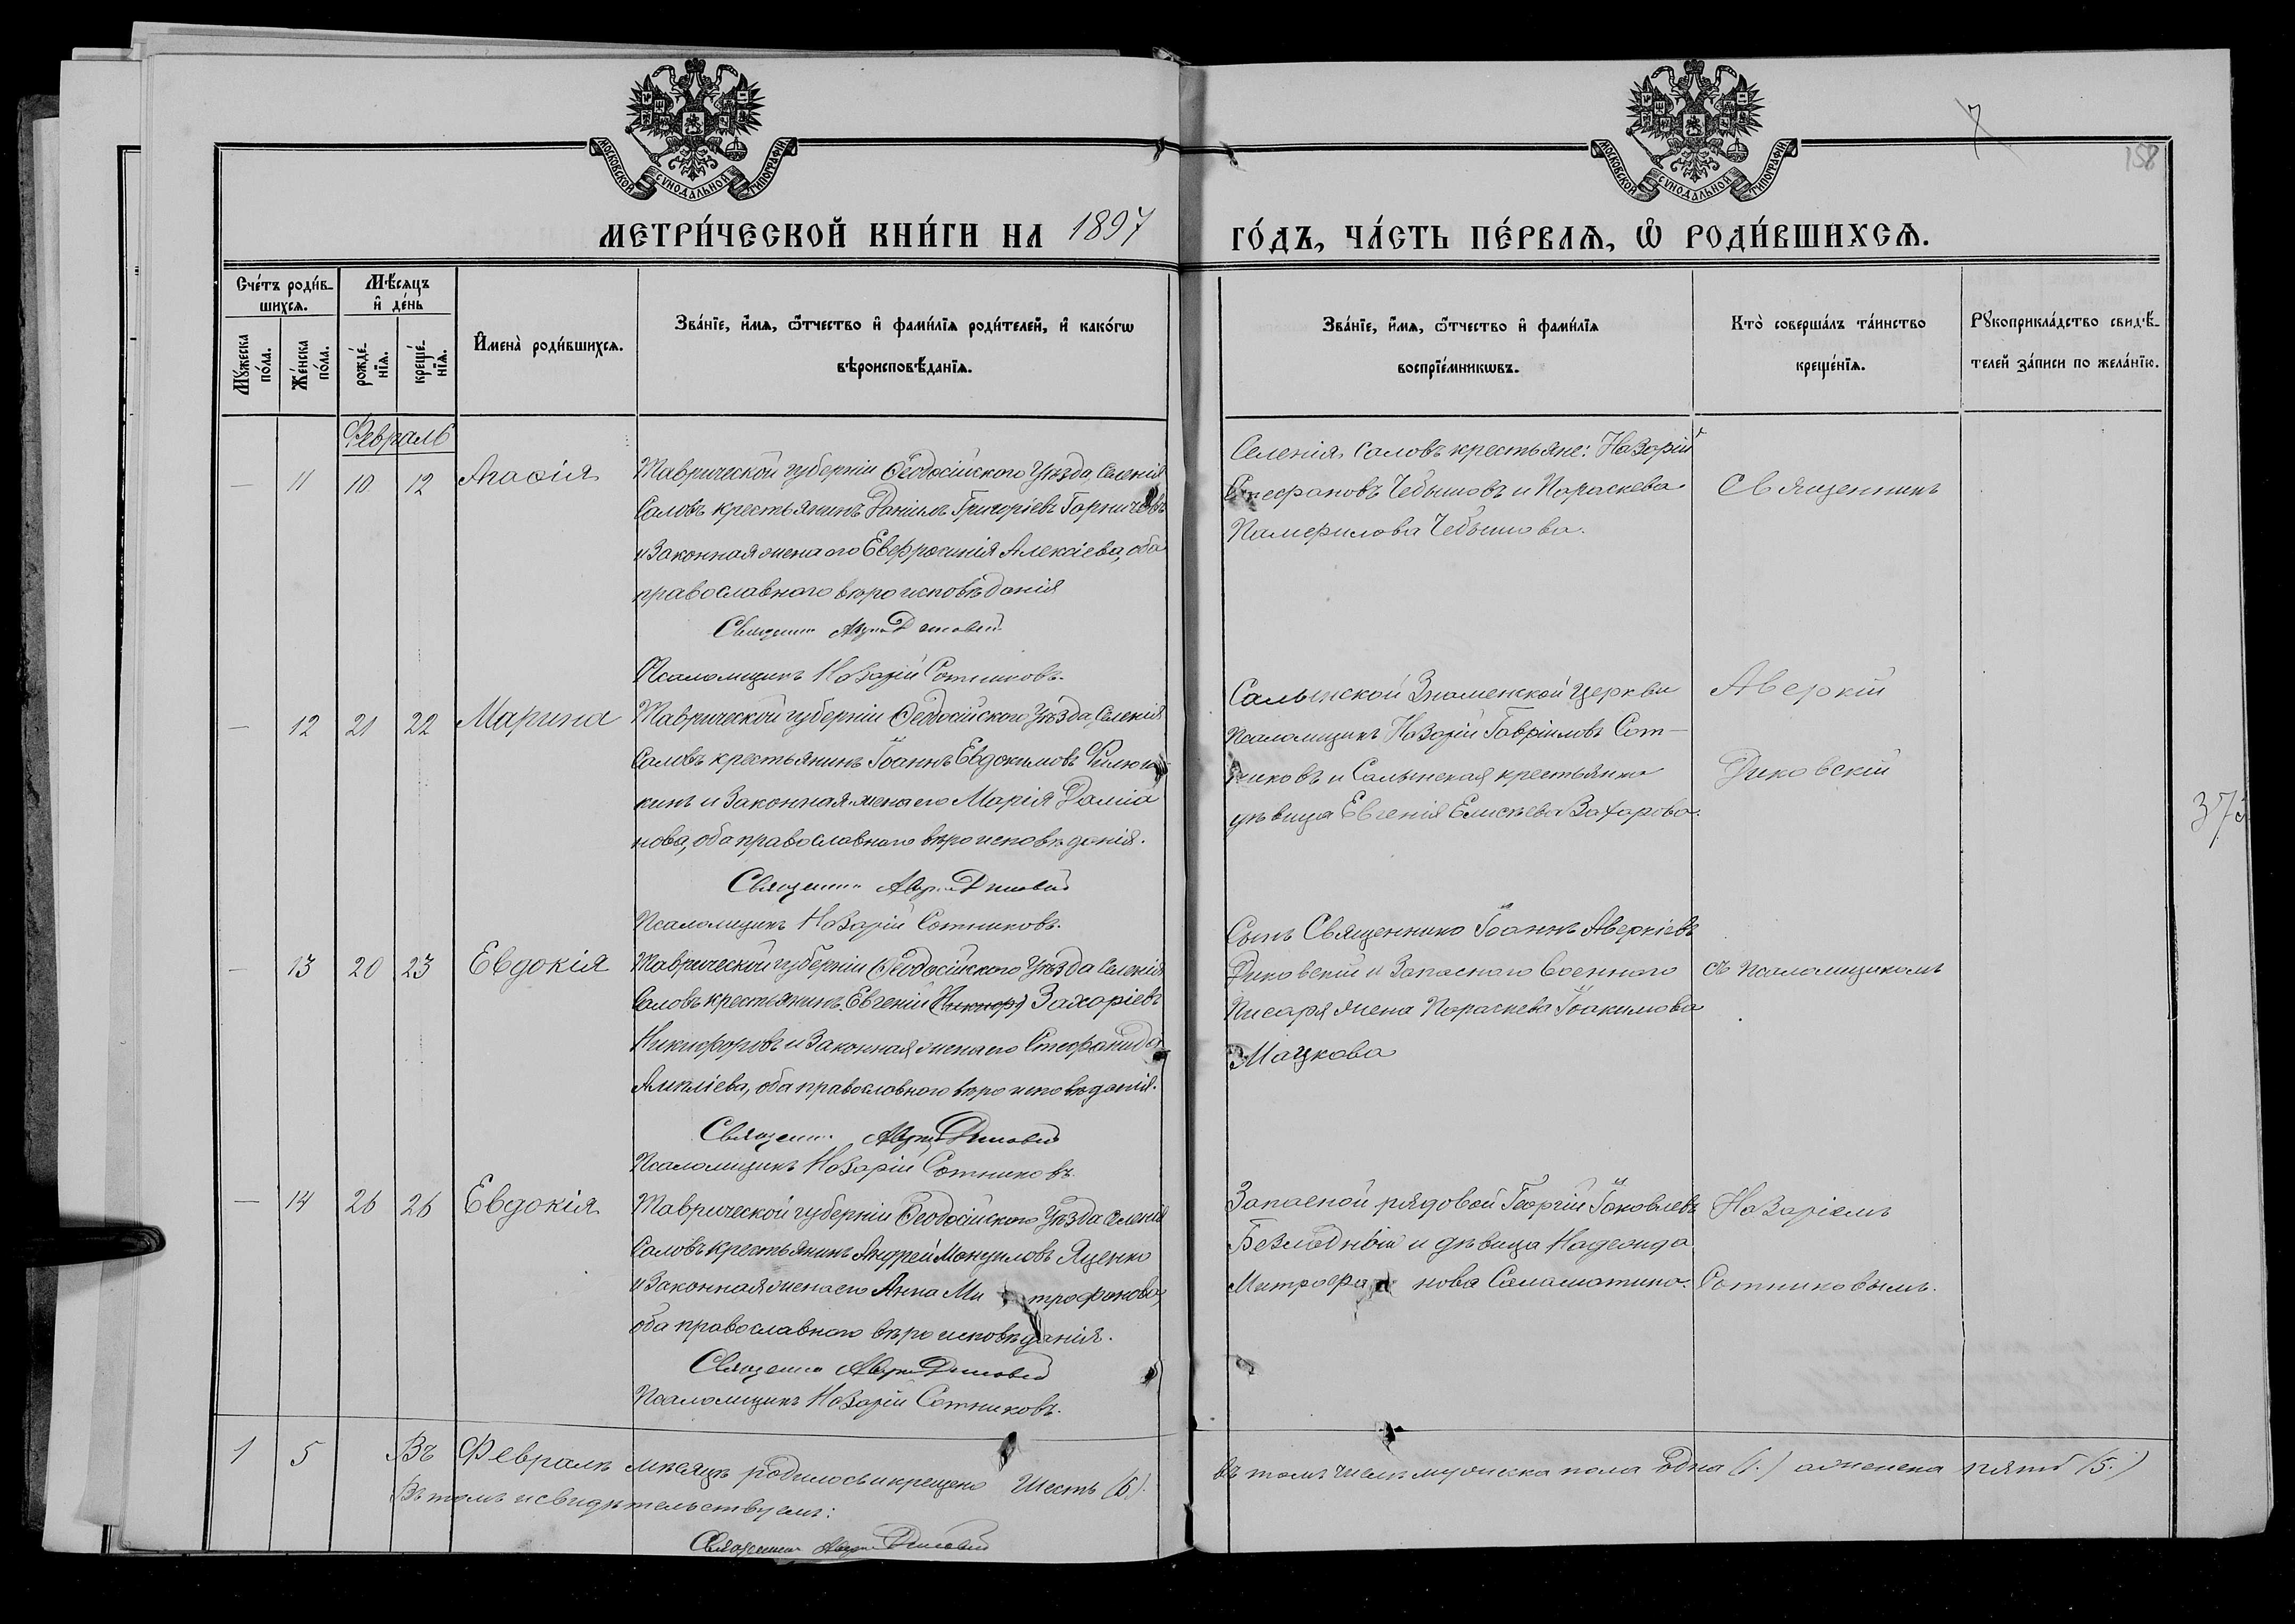 МОСКОВСКОЙ СѴНОДАЛЬНОЙ ТИПОГРАФІИ
МОСКОВСКОЙ СѴНОДАЛЬНОЙ ТИПОГРАФІИ
7
158
МЕТРИ́ЧЕСКОЙ КНИ́ГИ НА 1897 ГО́ДЪ, ЧА́СТЬ ПЕ́РВАѦ, Ѡ҆ РОДИ́ВШИХСѦ.
Сче́тъ роди́в-
шихсѧ.
Мꙋ́жеска по́ла.
Же́нска по́ла.
Мѣ́сѧцъ
и҆ де́нь
рожде́-
нїѧ.
креще́-
нїѧ.
И҆мена̀ роди́вшихсѧ.
Зва́нїе, и҆́мѧ, ѻ҆́тчество и҆ фами́лїѧ роди́телей, и҆ како́гѡ
вѣроисповѣ́данїѧ.
Зва́нїе, и҆́мѧ, ѻ҆́тчество и҆ фами́лїѧ
воспрїе́мникѡвъ.
Кто̀ соверша́лъ та́инство
креще́нїѧ.
Рꙋкоприкла́дство свидѣ́-
телей за́писи по жела́нїю.
Февраль
— 11 10 12 Агаѳія
Таврической губерніи Ѳеодосійского Уѣзда, Селенія
Саловъ крестьянинъ Даніилъ Григоріевъ
и законная жена его Евфросинія Алексіева, оба
православного вѣроисповѣданія
Священникъ
Псаломщикъ Назарій Сотниковъ.
Селенія, Саловъ крестьяне: Назарій
Стефановъ Чебышовъ и Параскева
Памфилова Чебышова.
Священникъ
— 12 21 22 Марина
Таврической губерніи Ѳеодосійского Уѣзда, Селенія
Саловъ крестьянинъ Іоаннъ Евдокимовъ Филюш
кинъ и законная жена его Марія Даміа
нова, оба православного вѣроисповѣданія.
Священникъ
Псаломщикъ Назарій Сотниковъ.
Салынской Знаменской церкви
Псаломщикъ Назарій Гавріиловъ Сот-
никовъ и Салынская крестьянка
дѣвица Евгенія Елисѣева Захарова.
Аверкій
Диковскій
373
— 13 20 23 Евдокія
Таврической губерніи Ѳеодосійского Уѣзда Селенія
Саловъ крестьянинъ Евгеній (Никифор) Захаріевъ
Никифоровъ и законная жена его Стефанида
оба православного вѣроисповѣданія.
Священникъ
Псаломщикъ Назарій Сотниковъ.
Сынъ Священника Іоаннъ Аверкіевъ
Диковскій и Запасного Военного
Писаря жена Параскева Іоакимова
Мацкова
съ псаломщикомъ
— 14 26 26 Евдокія
Таврической губерніи Ѳеодосійского Уѣзда Селенія
Саловъ крестьянинъ Андрей Мануиловъ Яценко
и законная жена его Анна Митрофанова,
оба православного вѣроисповѣданія.
Священникъ
Псаломщикъ Назарій Сотниковъ.
Запасной рядовой Георгій Іаковлевъ
и дѣвица Надежда
Митрофанова Саламатина.
Назаріемъ
Сотниковымъ.
1 5 Въ Февралѣ мѣсяцѣ родилось и крещено Шесть (6).
въ томъ числѣ мужеска пола одна (1.) а женска пять (5.)
Въ томъ и свидѣтельствуемъ:
Священникъ